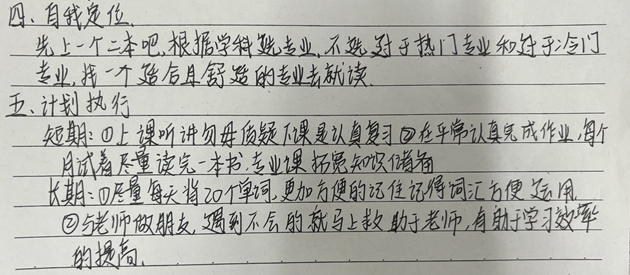 四、自我定位.
先上一个二本吧,根据学科选专业,不选对于热门专业和对于冷门
专业,找一个适合且舒适的专业去就读.
五、计划执行
短期:①上课听讲勿毋质疑下课是认真复习②在平常认真完成作业,每个
月试着尽量读完一本书,专业课拓宽知识储备
长期:①尽量每天背20个单词,更加方便的记住记得词汇方便运用.
②与老师做朋友,遇到不会的就马上救助于老师,有助于学习效率
的提高.